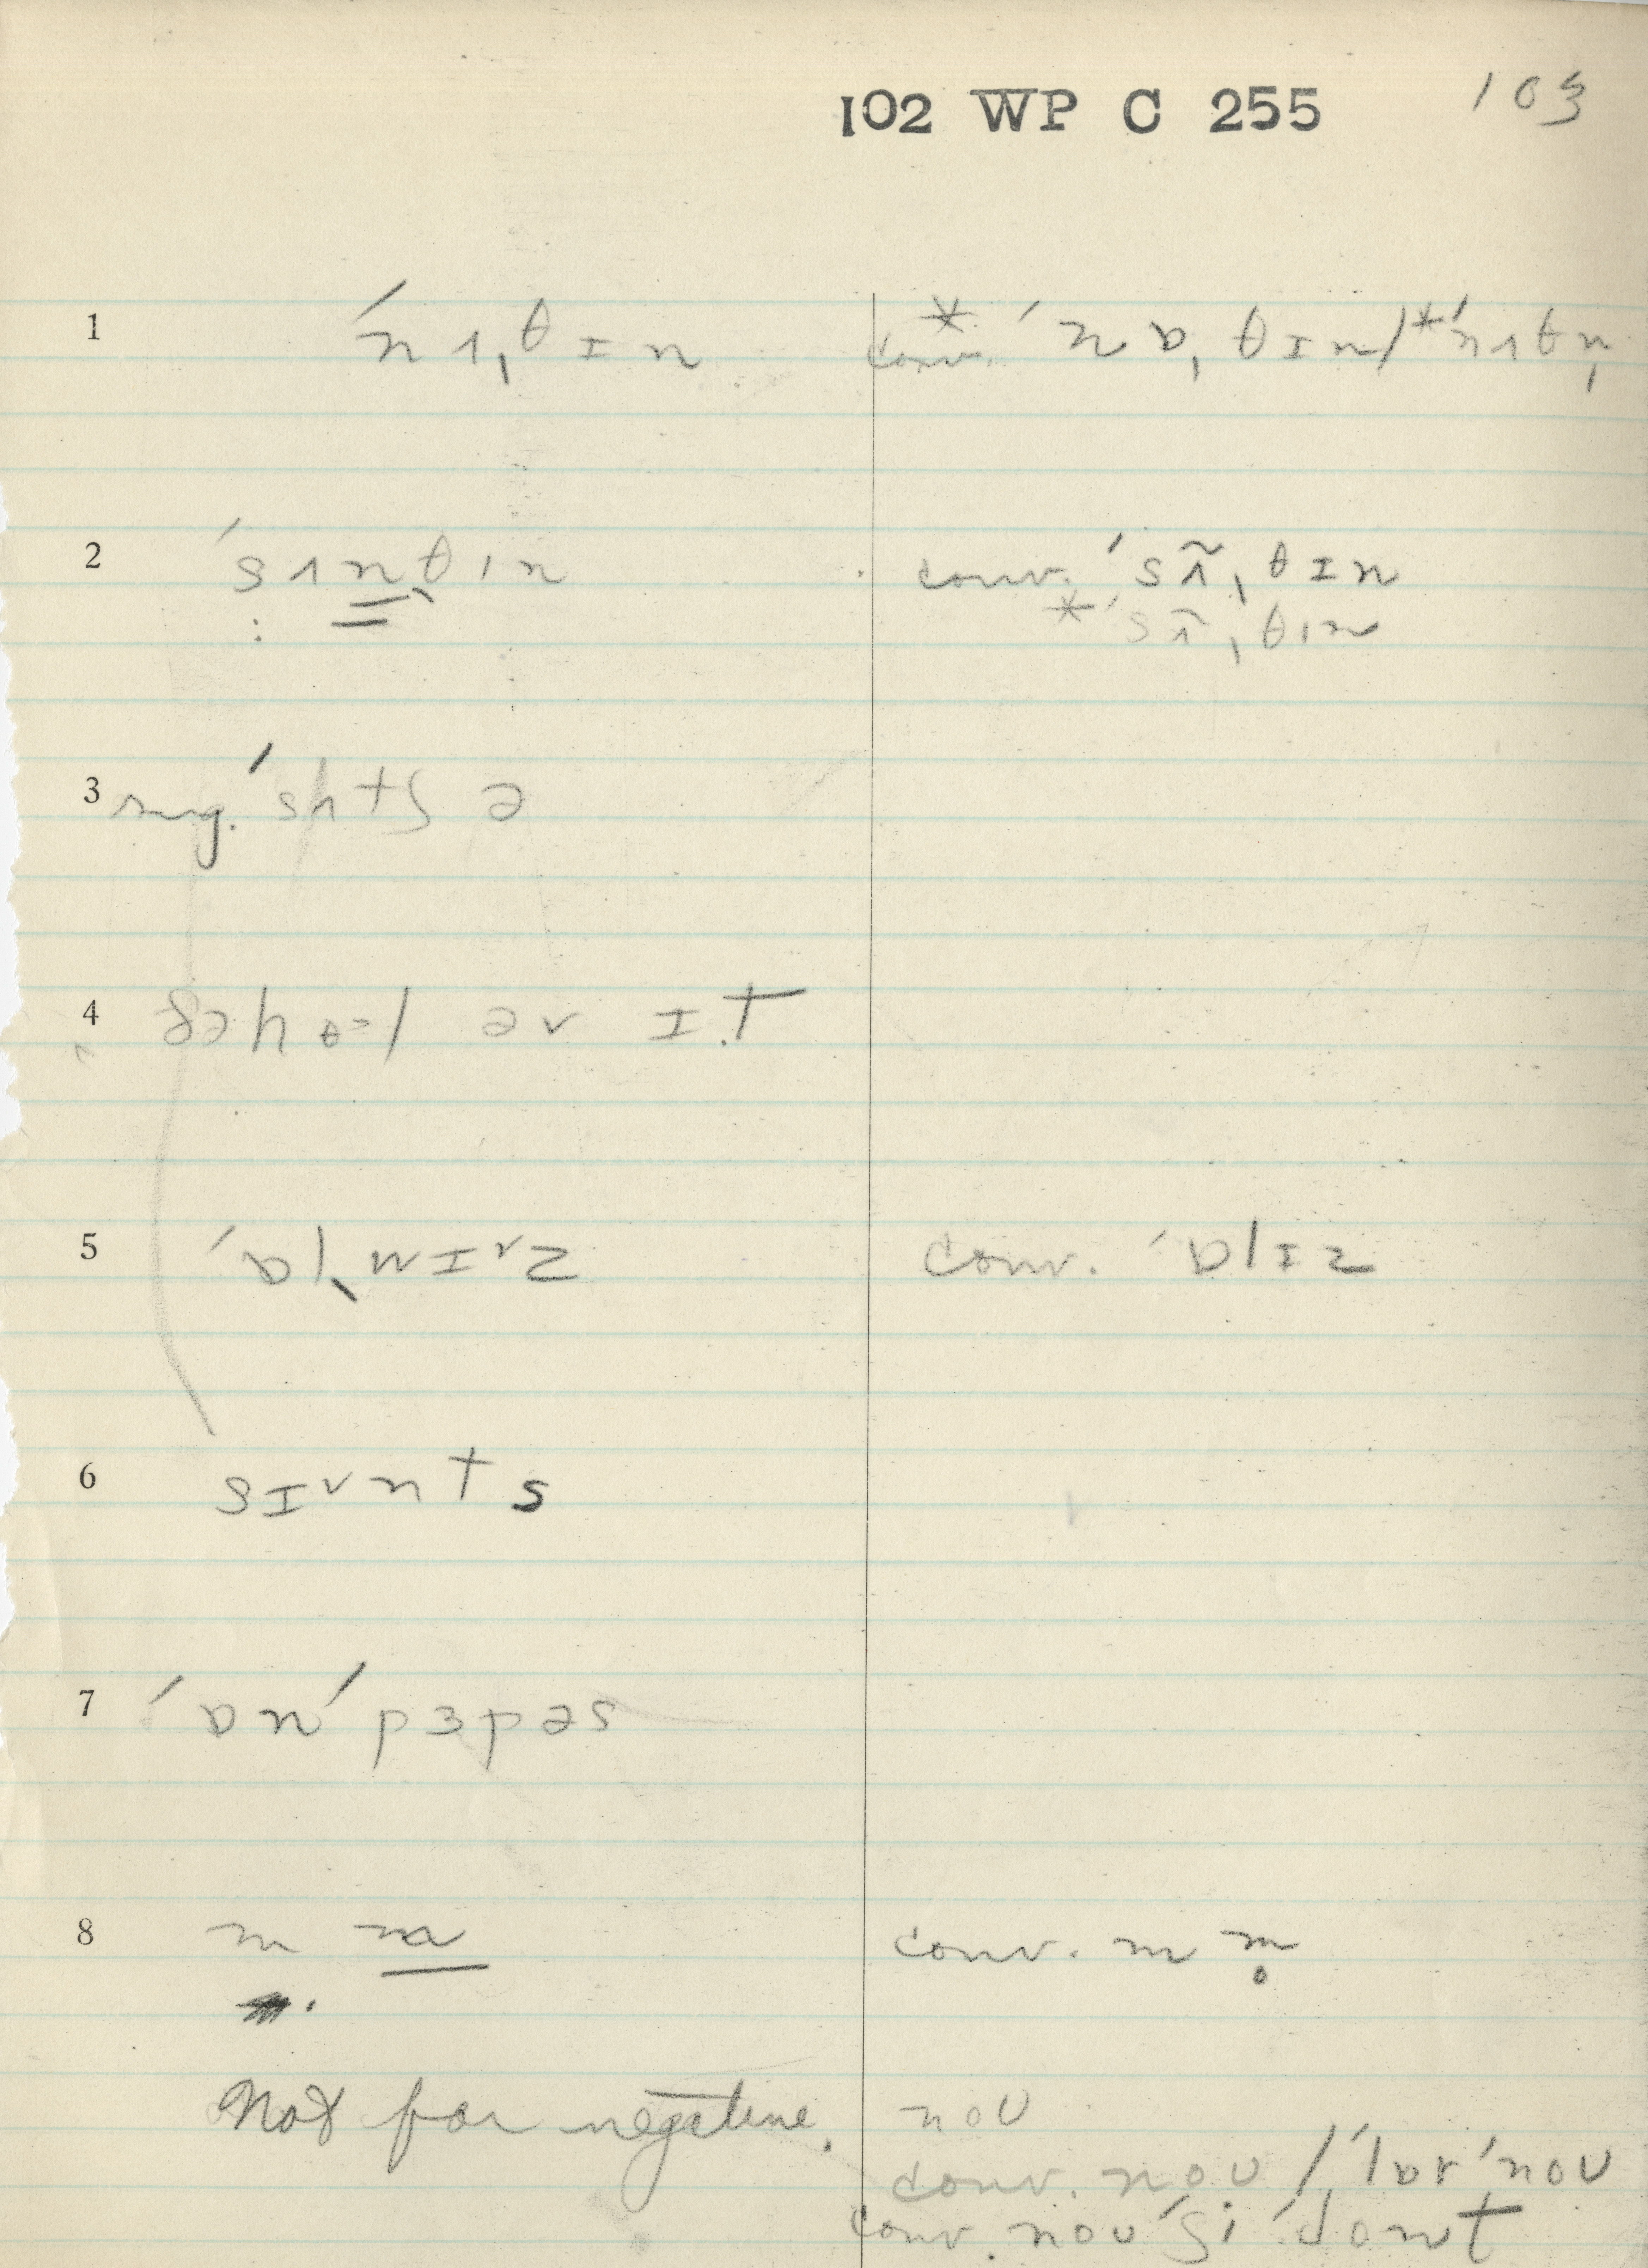 102 WP C 255 103
1 ˈnʌ̩θɪn conv. *ˈnɒ̩θɪn/*ˈnʌθn̩
2 ˈsʌnθɪn conv. ˈsʌ̩̃θɪn
*ˈsʌ̩̃θɪn
3 sug. ˈsʌtʃ ə
4 ðəhɵ=l əv ɪt
5 ˈɒl wɪᵛz conv. ˈɒlɪz
6 sɪᵛnts
7 ˈɒn ˈpɜpəs
8 m conv. m m̥
Not for negative. noʊ
conv. noʊ / ˈlɒɾ ˈnoʊ
conv. noʊ ˈʃi ˈdoʊnt